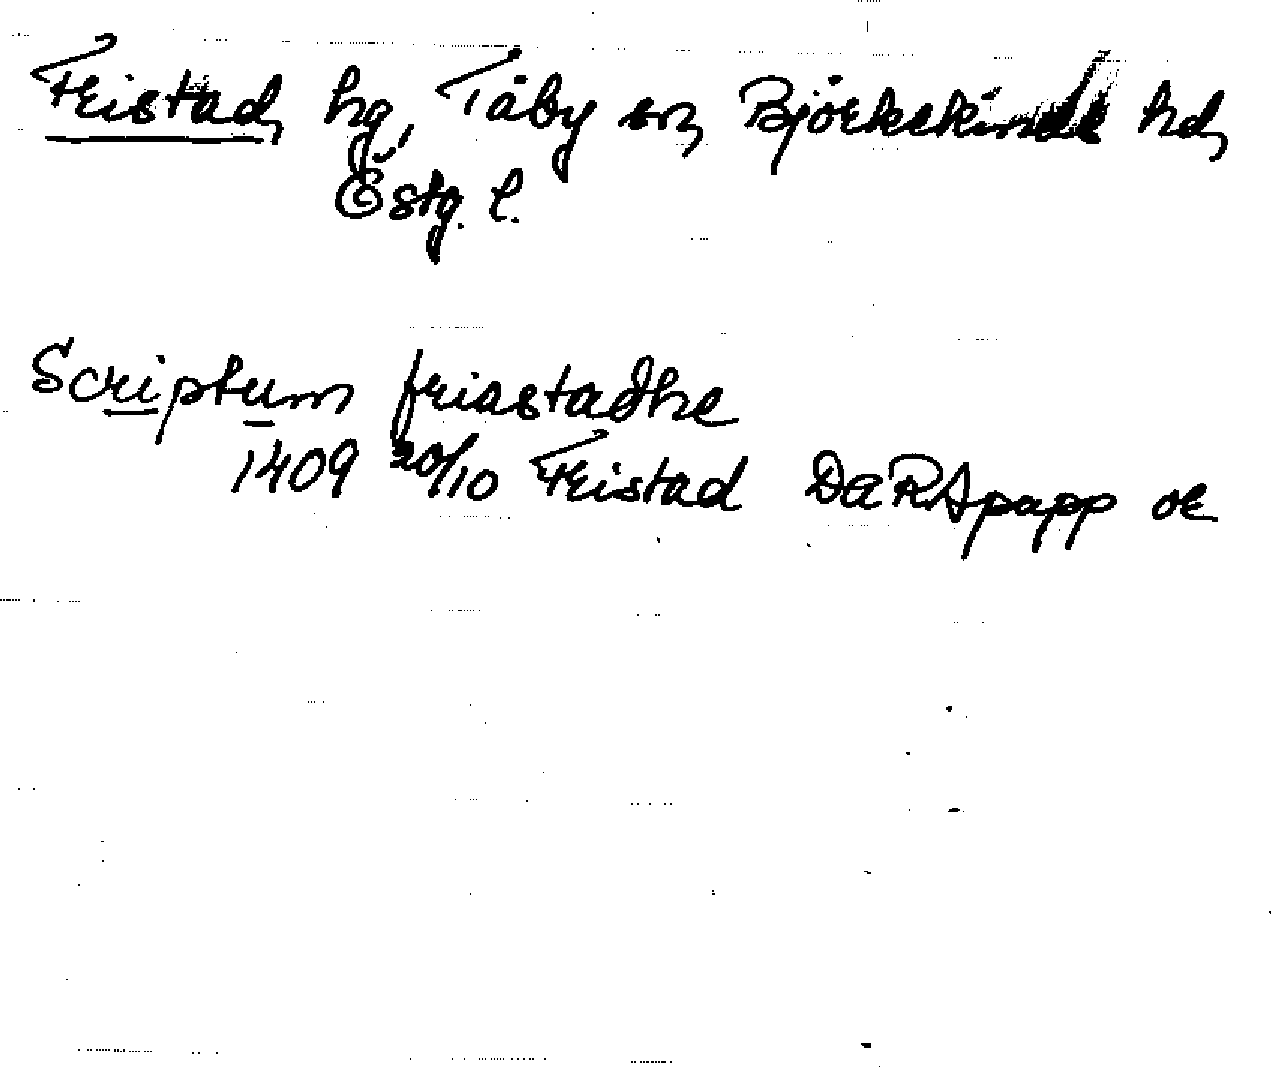 Fristad, hg, Tåby sn, Björkekinds hd,
Östg. l.
Scriptum friastadhe
1409 20/10 Fristad DaRApapp or